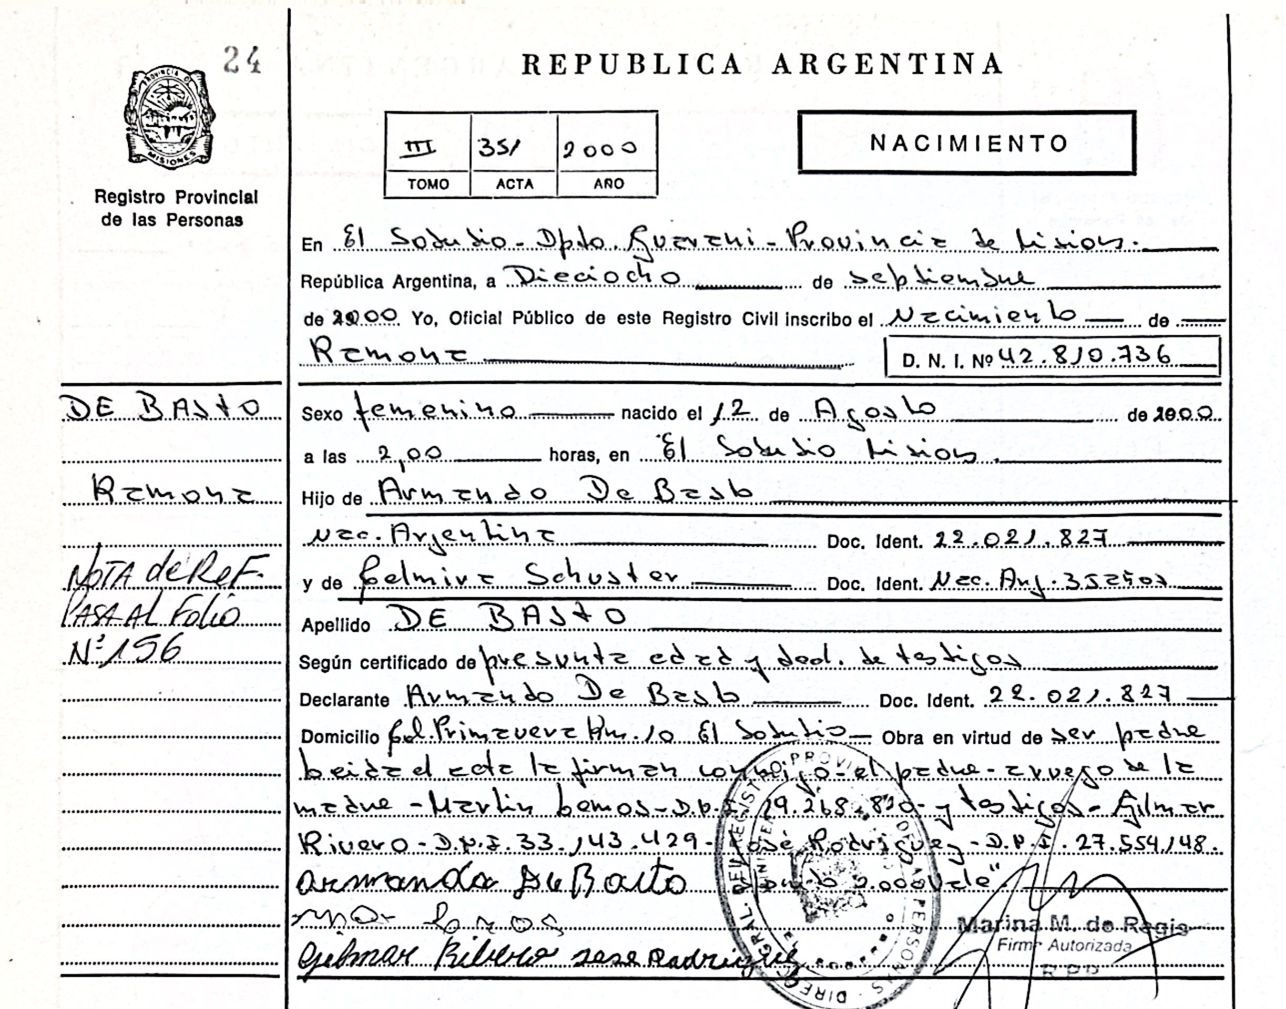 24
REPUBLICA ARGENTINA
PROVINCIA DE MISIONES
Registro Provincial
de las Personas
III 351 2000
TOMO ACTA AÑO
NACIMIENTO
En El Soberbio - Dpto. Guarani - Provincia de Misiones.
República Argentina, a Dieciocho de septiembre
de 2000 Yo, Oficial Público de este Registro Civil inscribo el Nacimiento de
Ramona D. N. I. Nº 42.810.736
DE BASTO
Sexo femenino nacido el 12 de Agosto de 2000
a las 2,00 horas, en El Soberbio Misiones.
Ramona
Hijo de Armando De Basto
Nac. Argentina Doc. Ident. 22.021.827
NOTA de ReF.
y de Celmira Schuster Doc. Ident. Nac. Arg. 35 años
PASA AL Folio
Apellido DE BASTO
Nº 156
Según certificado de presunta edad y decl. de testigos
Declarante Armando De Basto Doc. Ident. 22.021.827
Domicilio Col. Primavera Km. 10 El Soberbio Obra en virtud de ser padre
leida el acta la firman conmigo - el padre - a ruego de la
madre - Martin - D.N.I. 29.268.820 - y testigos - Gilmar
Rivero - D.N.I. 33.143.429 - José Rodriguez - D.N.I. 27.554.148.
Armando De Basto 2.000 Vale"
Marina M. de Regis
Firma Autorizada
Gilmar Ribero Jose Rodriguez
R.P.P.